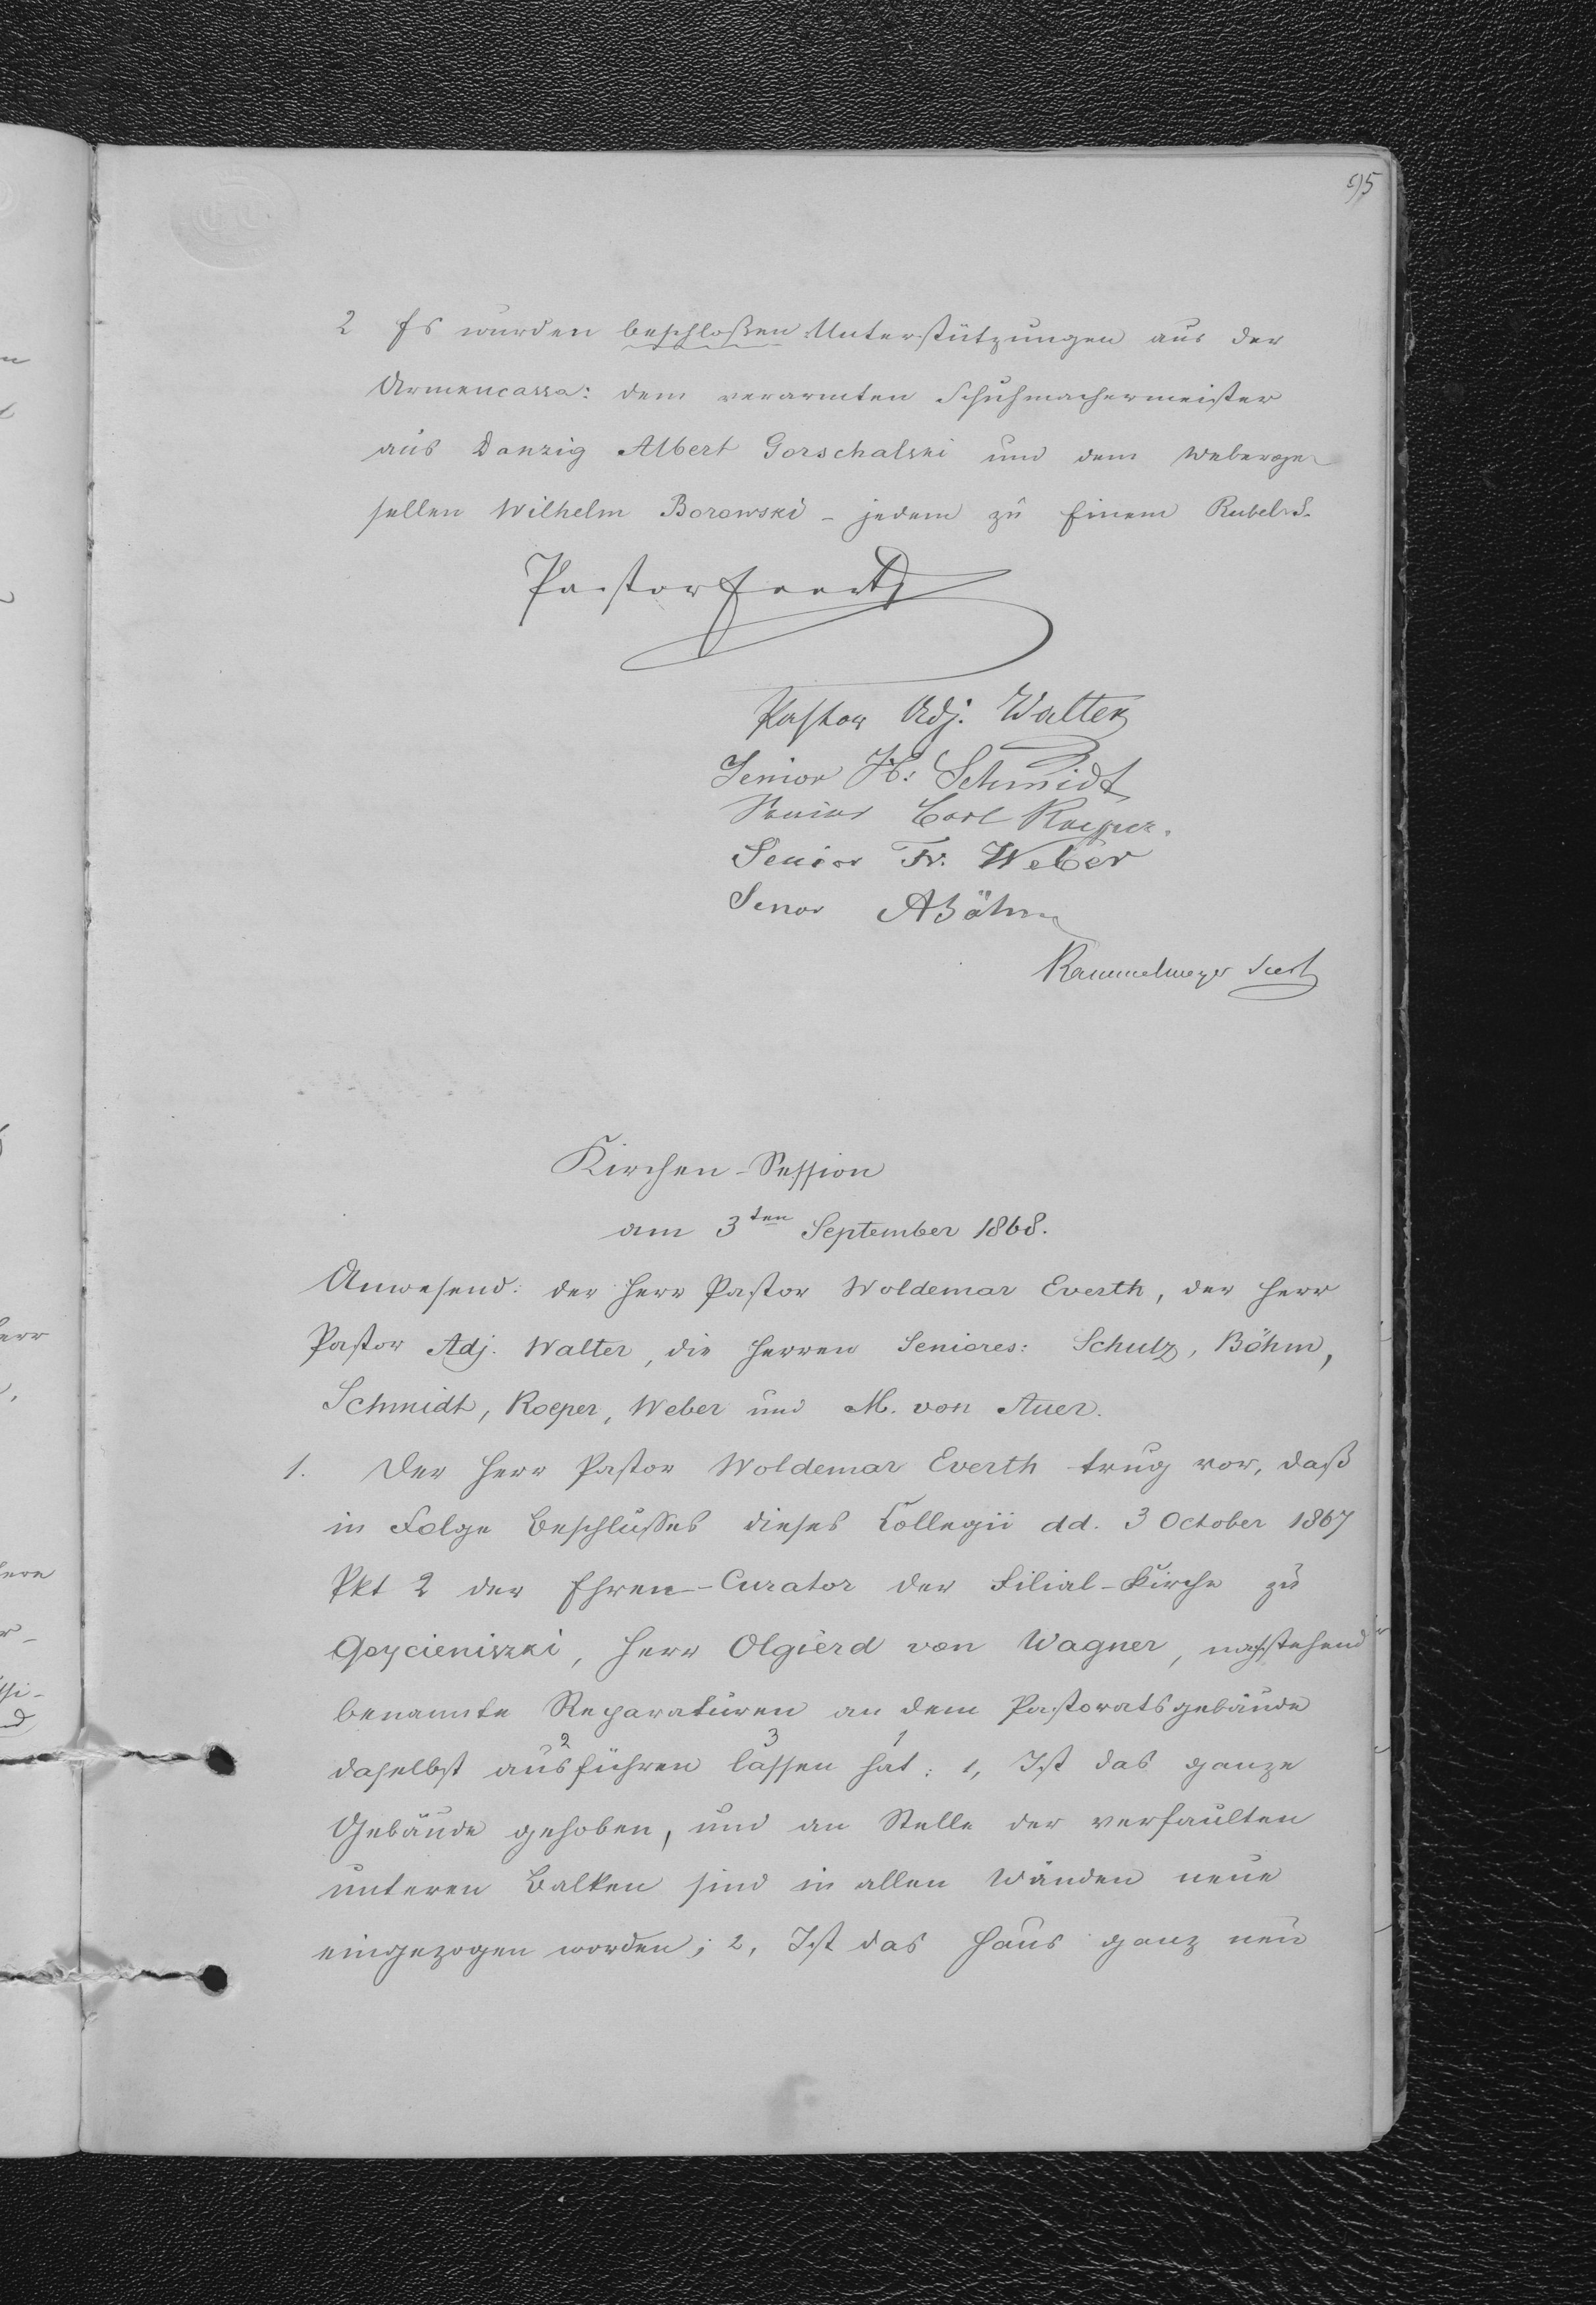 95
2 Es wurden beschloßen Unterstützungen aus der
Armencassa: dem verarmten Schuhmachermeister
aus Danzig Albert Gorschalski und dem Weberge-
sellen Wilhelm Borowski - jedem zu Einem Rubel S.
Pastor Everth
Pastor Adj. Walter
Senior H: Schmidt
Senior Carl Roeper.
Senior Fr. Weber
Senor ABöhm
Rammelmeyer Secrt
Kirchen-Session
am 3ten September 1868.
Anwesend: der Herr Pastor Woldemar Everth, der Herr
Pastor Adj. Walter, die Herren Seniores: Schulz, Böhm,
Schmidt, Roeper, Weber und M. von Auer.
1. Der Herr Pastor Woldemar Everth trug vor, daß
in Folge Beschlußes dieses Collegii dd. 3 October 1867
Pkt 2 der Ehren-Curator der Filial-Kirche zu
Goycieniszki, Herr Olgierd von Wagner, nachstehend
benannte Reparaturen an dem Pastoratsgebäude
daselbst 2 ausführen 3 lassen 1 hat: 1, Ist das ganze
Gebäude gehoben, und an Stelle der verfaulten
unteren Balken sind in allen Wänden neue
eingezogen worden; 2, Ist das Haus ganz neu